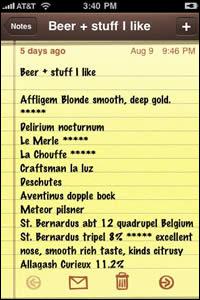 AT&T 3:40 PM
Notes Beer + stuff I like +
5 days ago Aug 9 9:46 PM
Beer + stuff I like
Affligem Blonde smooth, deep gold.
*****
Delirium nocturnum
Le Merle *****
La Chouffe *****
Craftsman la luz
Deschutes
Aventinus dopple bock
Meteor pilsner
St. Bernardus abt 12 quadrupel Belgium
St. Bernardus tripel 8% ***** excellent
nose, smooth rich taste, kinda citrusy
Allagash Curieux 11.2%